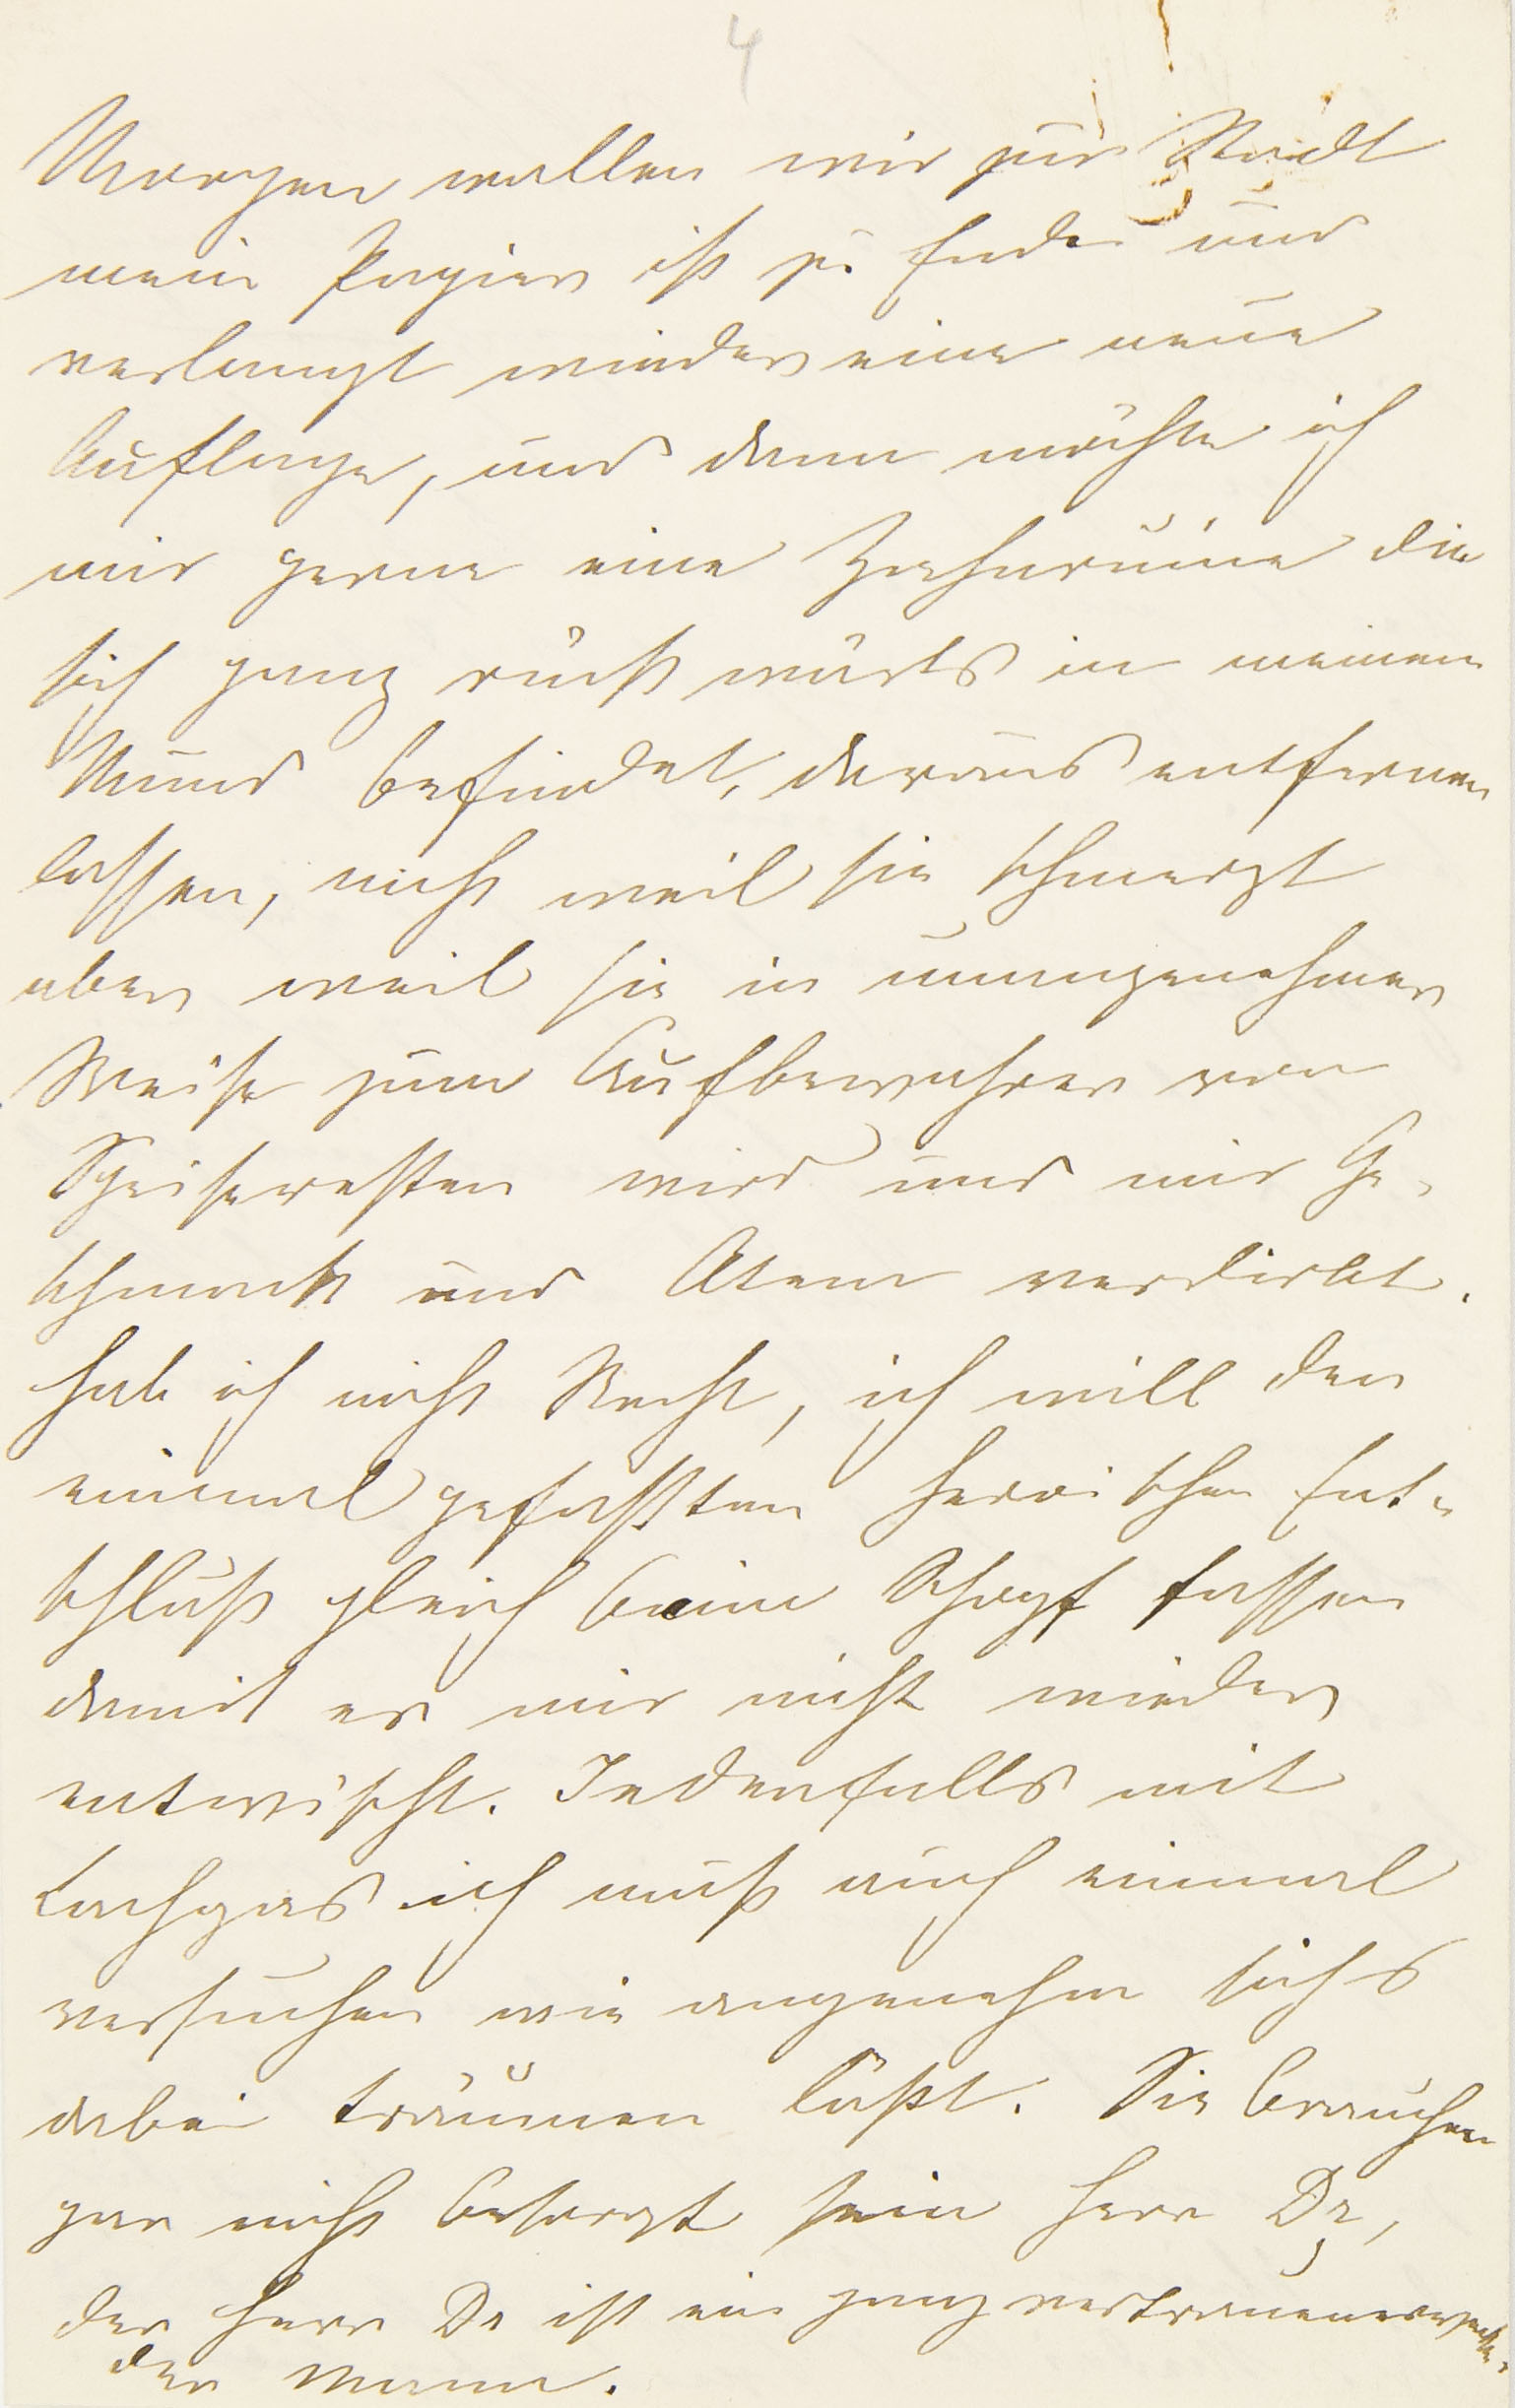 4
Morgen wollen wir zur Stadt
mein Papier ist zu Ende und
verlangt wieder eine neue
Auflage, und dann möchte ich
mir gerne eine Zahnruine die
sich ganz rückwärts in meinem
Mund befindet, daraus entfernen
lassen, nicht weil sie schmerzt
aber weil sie in unangenehmer
Weise zum Aufbewahrer von
Speiseresten wird und mir Ge-
schmack und Atem verdirbt.
Hab ich nicht Recht, ich will den
einmal gefassten heroischen Ent-
schluß gleich beim Schopf fassen
damit er mir nicht wieder
entwischt. Jedenfalls mit
Lachgas ich muß auch einmal
versuchen wie angenehm sichs
dabei träumen läßt. Sie brauchen
gar nicht besorgt sein Herr Dr,
der Herr Dr ist ein ganz vertrauenerwecken-
der Mann.